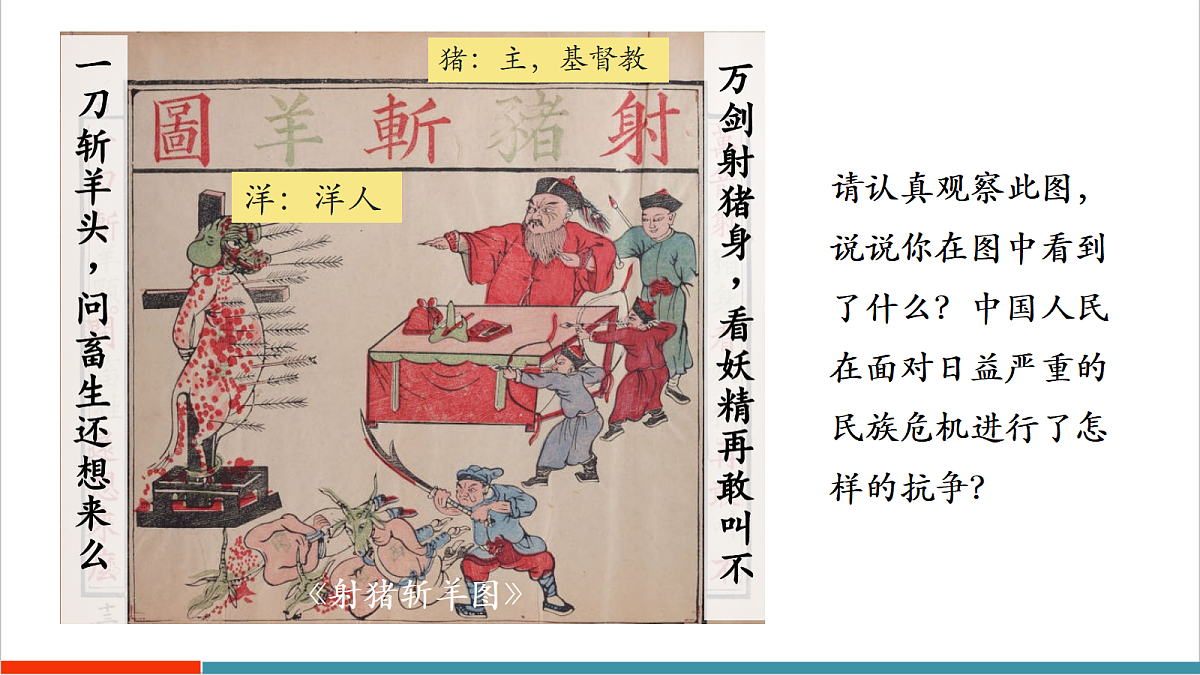 猪：主，基督教
射豬斬羊圖
洋：洋人
万剑射猪身，看妖精再敢叫不
一刀斩羊头，问畜生还想来么
《射猪斩羊图》
请认真观察此图，
说说你在图中看到
了什么？中国人民
在面对日益严重的
民族危机进行了怎
样的抗争？